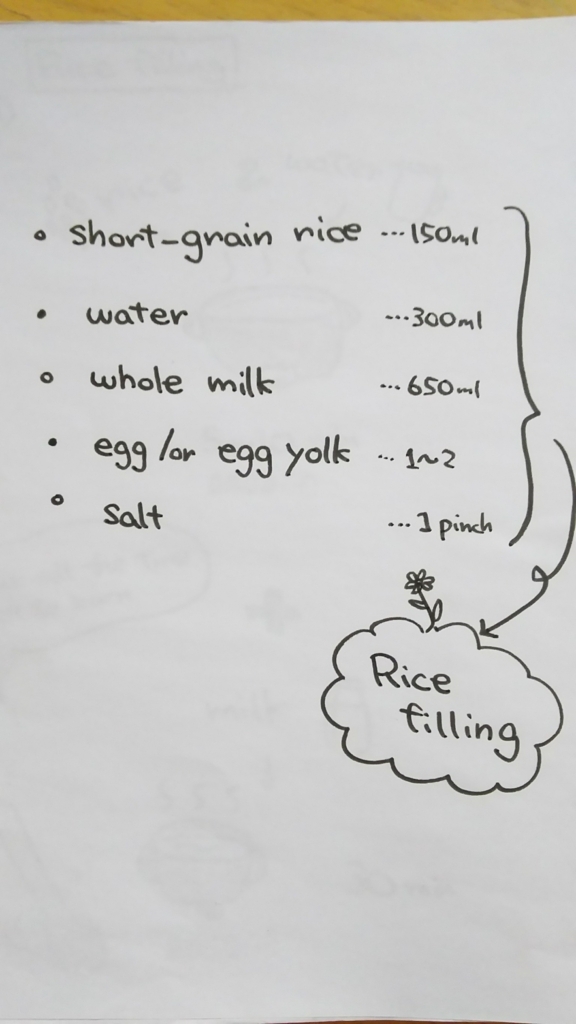 short-grain rice ... 150ml
water ... 300ml
whole milk ... 650ml
egg /or egg yolk ... 1~2
salt ... 1 pinch
Rice
filling